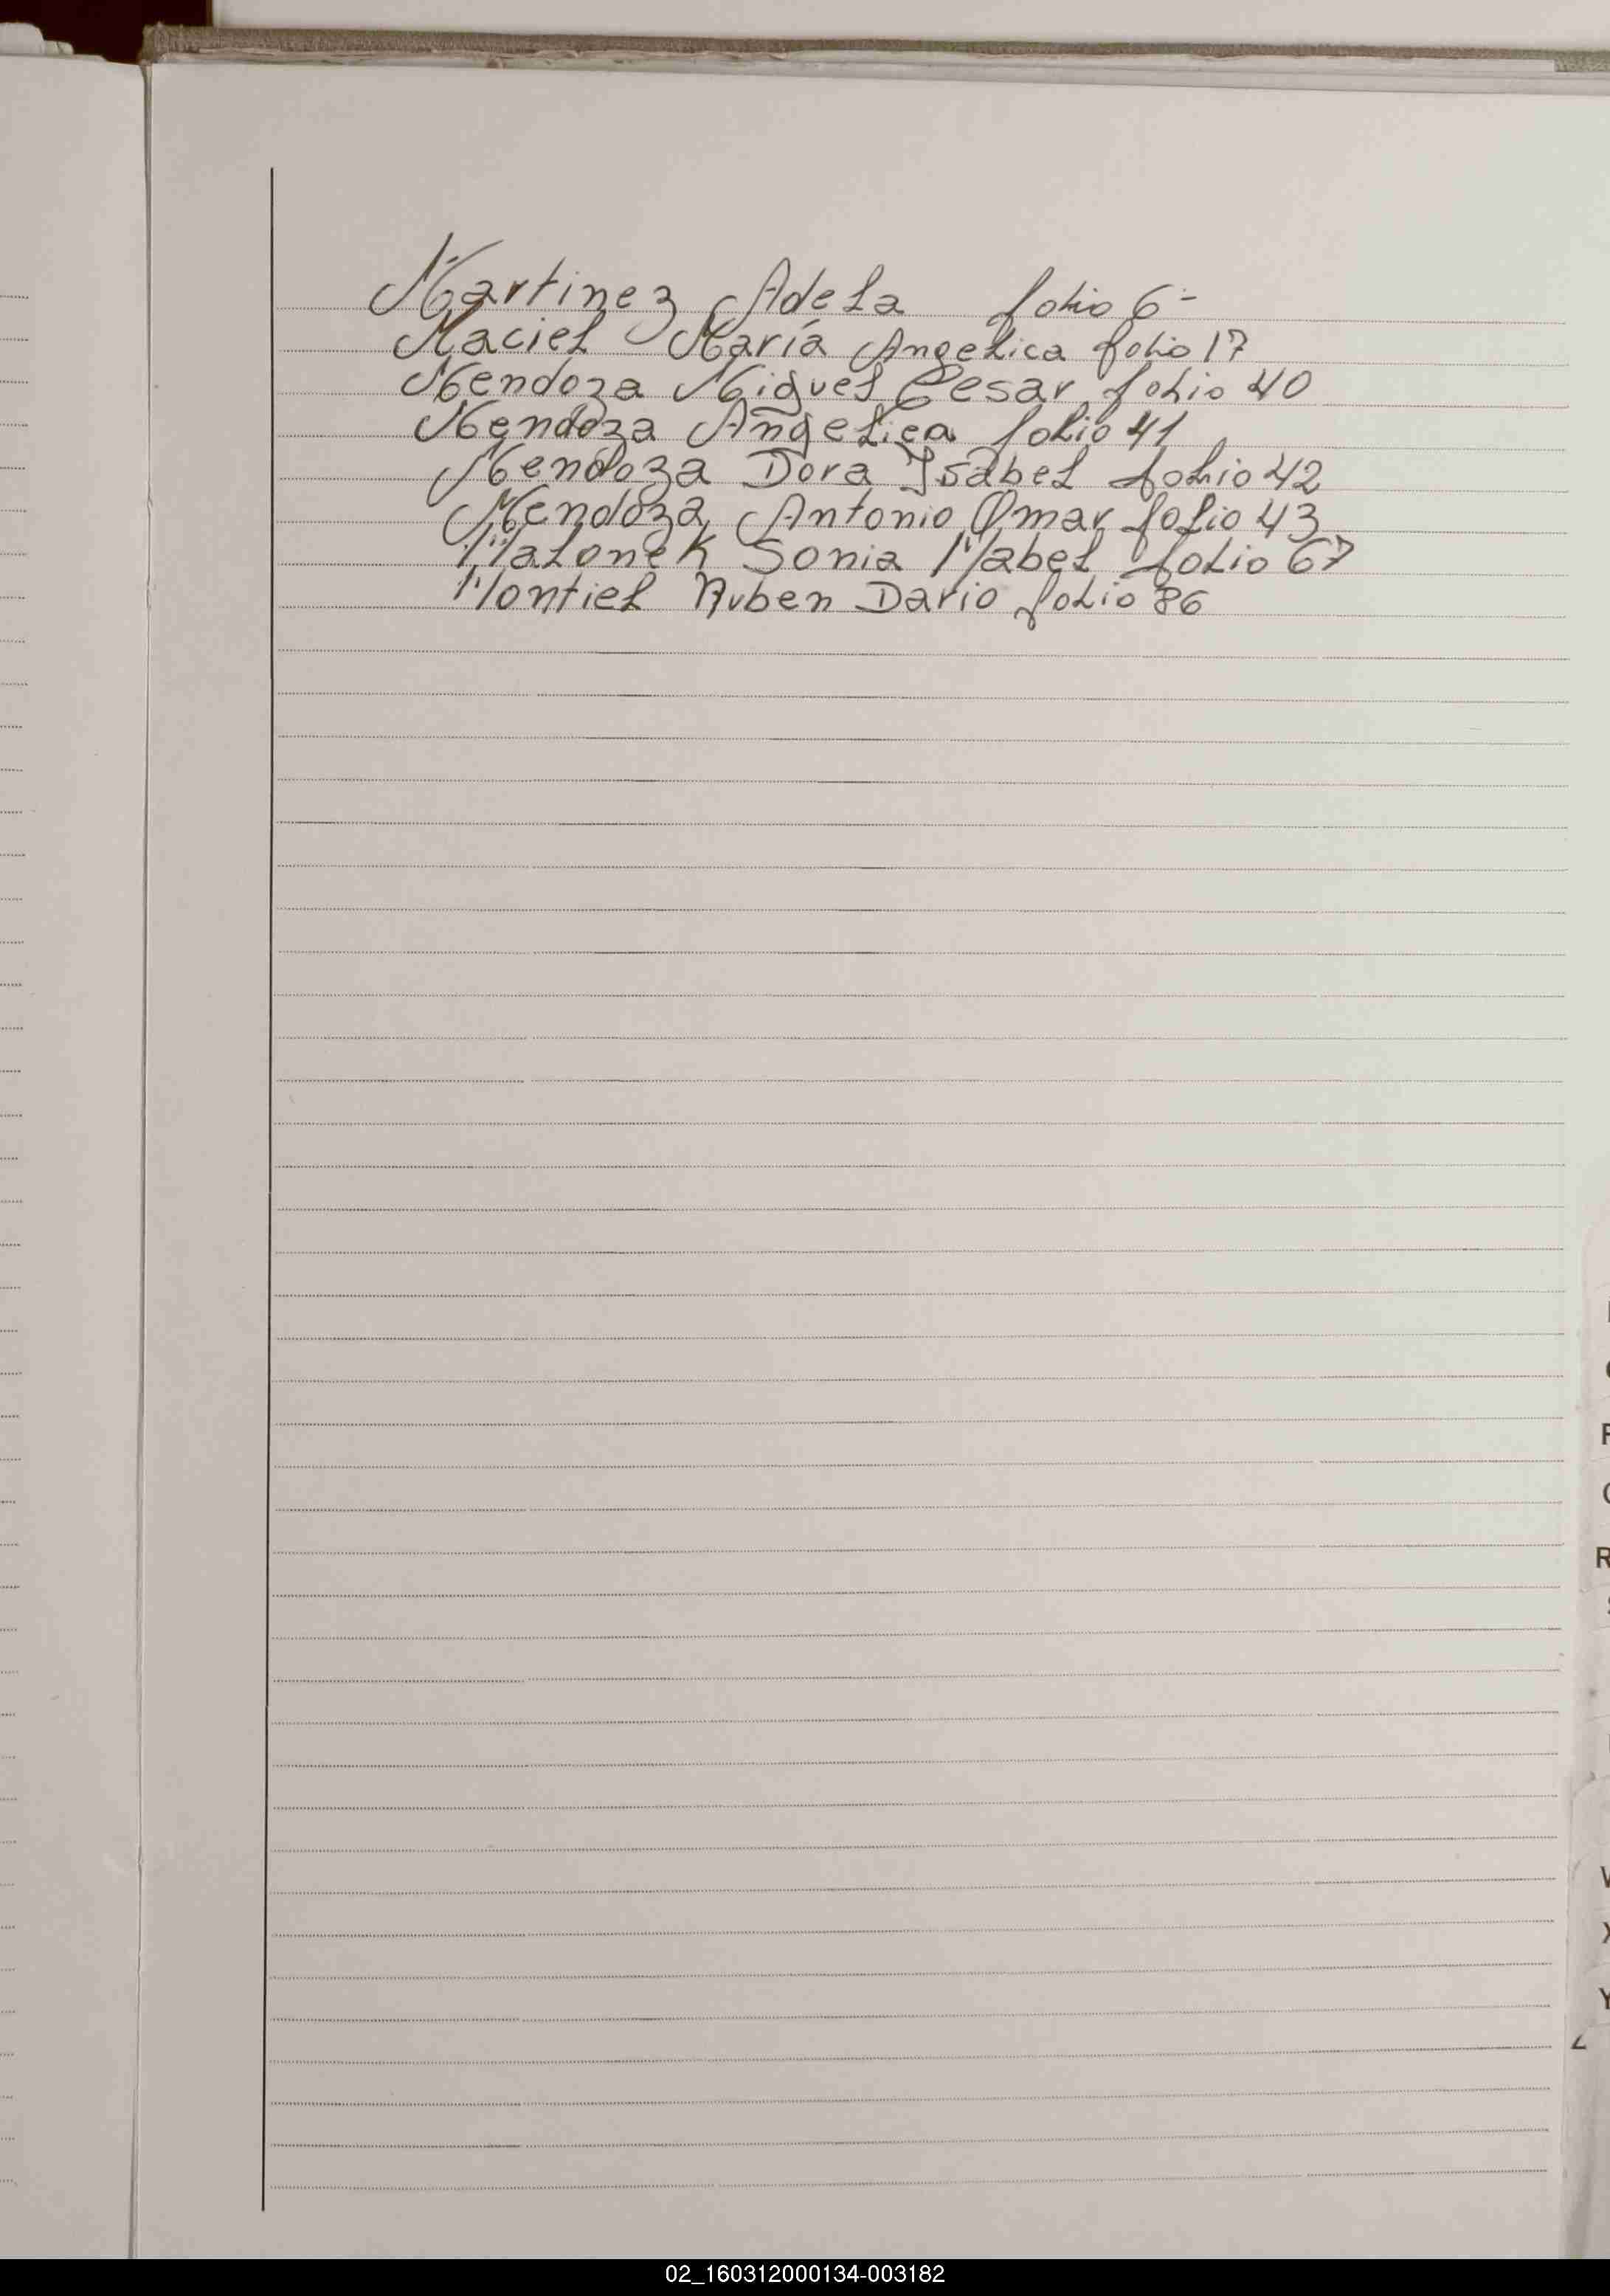 Martinez Adela folio 6-
Maciel María Angelica folio 17
Mendoza Miguel Cesar folio 40
Mendoza Angelica folio 41
Mendoza Dora Isabel folio 42
Mendoza Antonio Omar folio 43
Malonek Sonia Mabel folio 67
Montiel Ruben Dario folio 86
R
Y
02_160312000134-003182